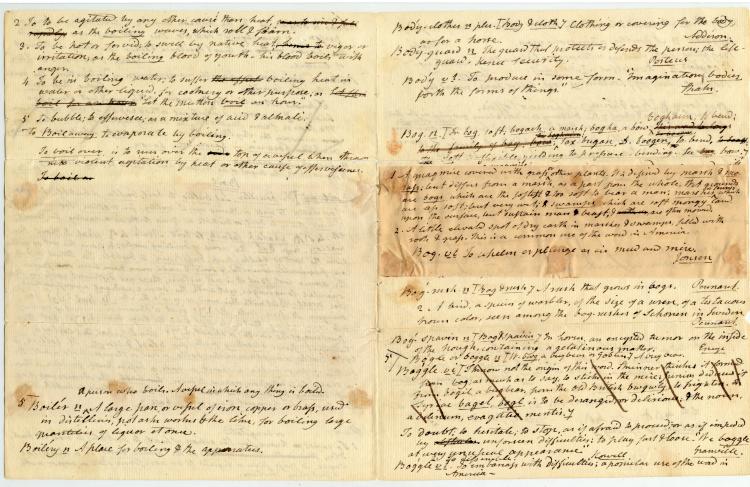 2. To be agitated by any other cause than heat,
as the boiling waves, which roll & foam.
3. To be hot or fervid; to swell by native heat, vigor or
irritation; as the boiling blood of youth. his blood boils with
anger.
4. To be in boiling water; to suffer boiling heat in
water or other liquid, for cookery or other purpose, as
Let the mutton boil an hour.
5. To bubble; to effervesce; as a mixture of acid & alkali.
To Boil away; to evaporate by boiling.
To boil over is to run over the top of a vessel when thrown
into violent agitation by heat or other cause of effervescence.
To boil
A person who boils. A vessel in which any thing is boiled.
5 Boiler n A large pan or vessel of iron copper or brass, used
in distilleries, pot ash works & the like, for boiling large
quantities of liquor at once.
Boilery n A place for boiling & the apparatus.
Body-clothes n plu- [body & cloth] Clothing or covering for the body,
as for a horse. Addison.
Body-guard n The guard that protects or defends the person; the life-
guard. hence security. Porteus
Body v.t. To produce in some form- "Imagination bodies
forth the forms of things" Shak.
Bog. n. [Ir bog, soft; bogach, a marsh; bogha, a bow, boghaim, to bend;
Sax bugan, D. boogen, to bend,
Soft is flexible, yielding to pressure- bending.
1 A quagmire covered with grass or other plants. It is defined by marsh & mo-
rass, but differs from a marsh, as a part from the whole. Wet grounds
are bogs which are the softest & too soft to bear a man; marshes which
are less soft; but very wet; & swamps which are soft spongy land
upon the surface, but sustain man & beast, & are often mowed.
2. A little elevated spot of dry earth in marshes & swamps, filled with
roots & grass. This is a common use of the word in America.
Bog. v.t To whelm or plunge as in mud and mire.
Jonson
Bog-rush n [Bog & rush] A rush that grows in bogs. Pennant.
2. A bird, a species of warbler, of the size of a wren, of a testaceous
brown color, seen among the bog-rushes of Schonen in Sweden
Pennant.
Bog spavin n [Bog & spavin] In horses, an encysted tumor on the inside
of the hough, containing a gelatinous matter. Encyc
5 Boggle or boggle n [W. bog, a bugbear or goblin]
Boggle v.i I know not the origin of this word. Skinner thinks it formed
from bog, as much as to say, to stick in the mire;
to
is to be deranged or delirious; & the noun,
delirium, evagatio mentis.]
To doubt, to hesitate; to stop, as if afraid to proceed, or as if impeded
by unforeseen difficulties; to play fast & loose. We boggle
at every unusual appearance Granville.
To dissemble. Howell
Boggle v.t. To embarrass with difficulties; a popular use of the word in
America-